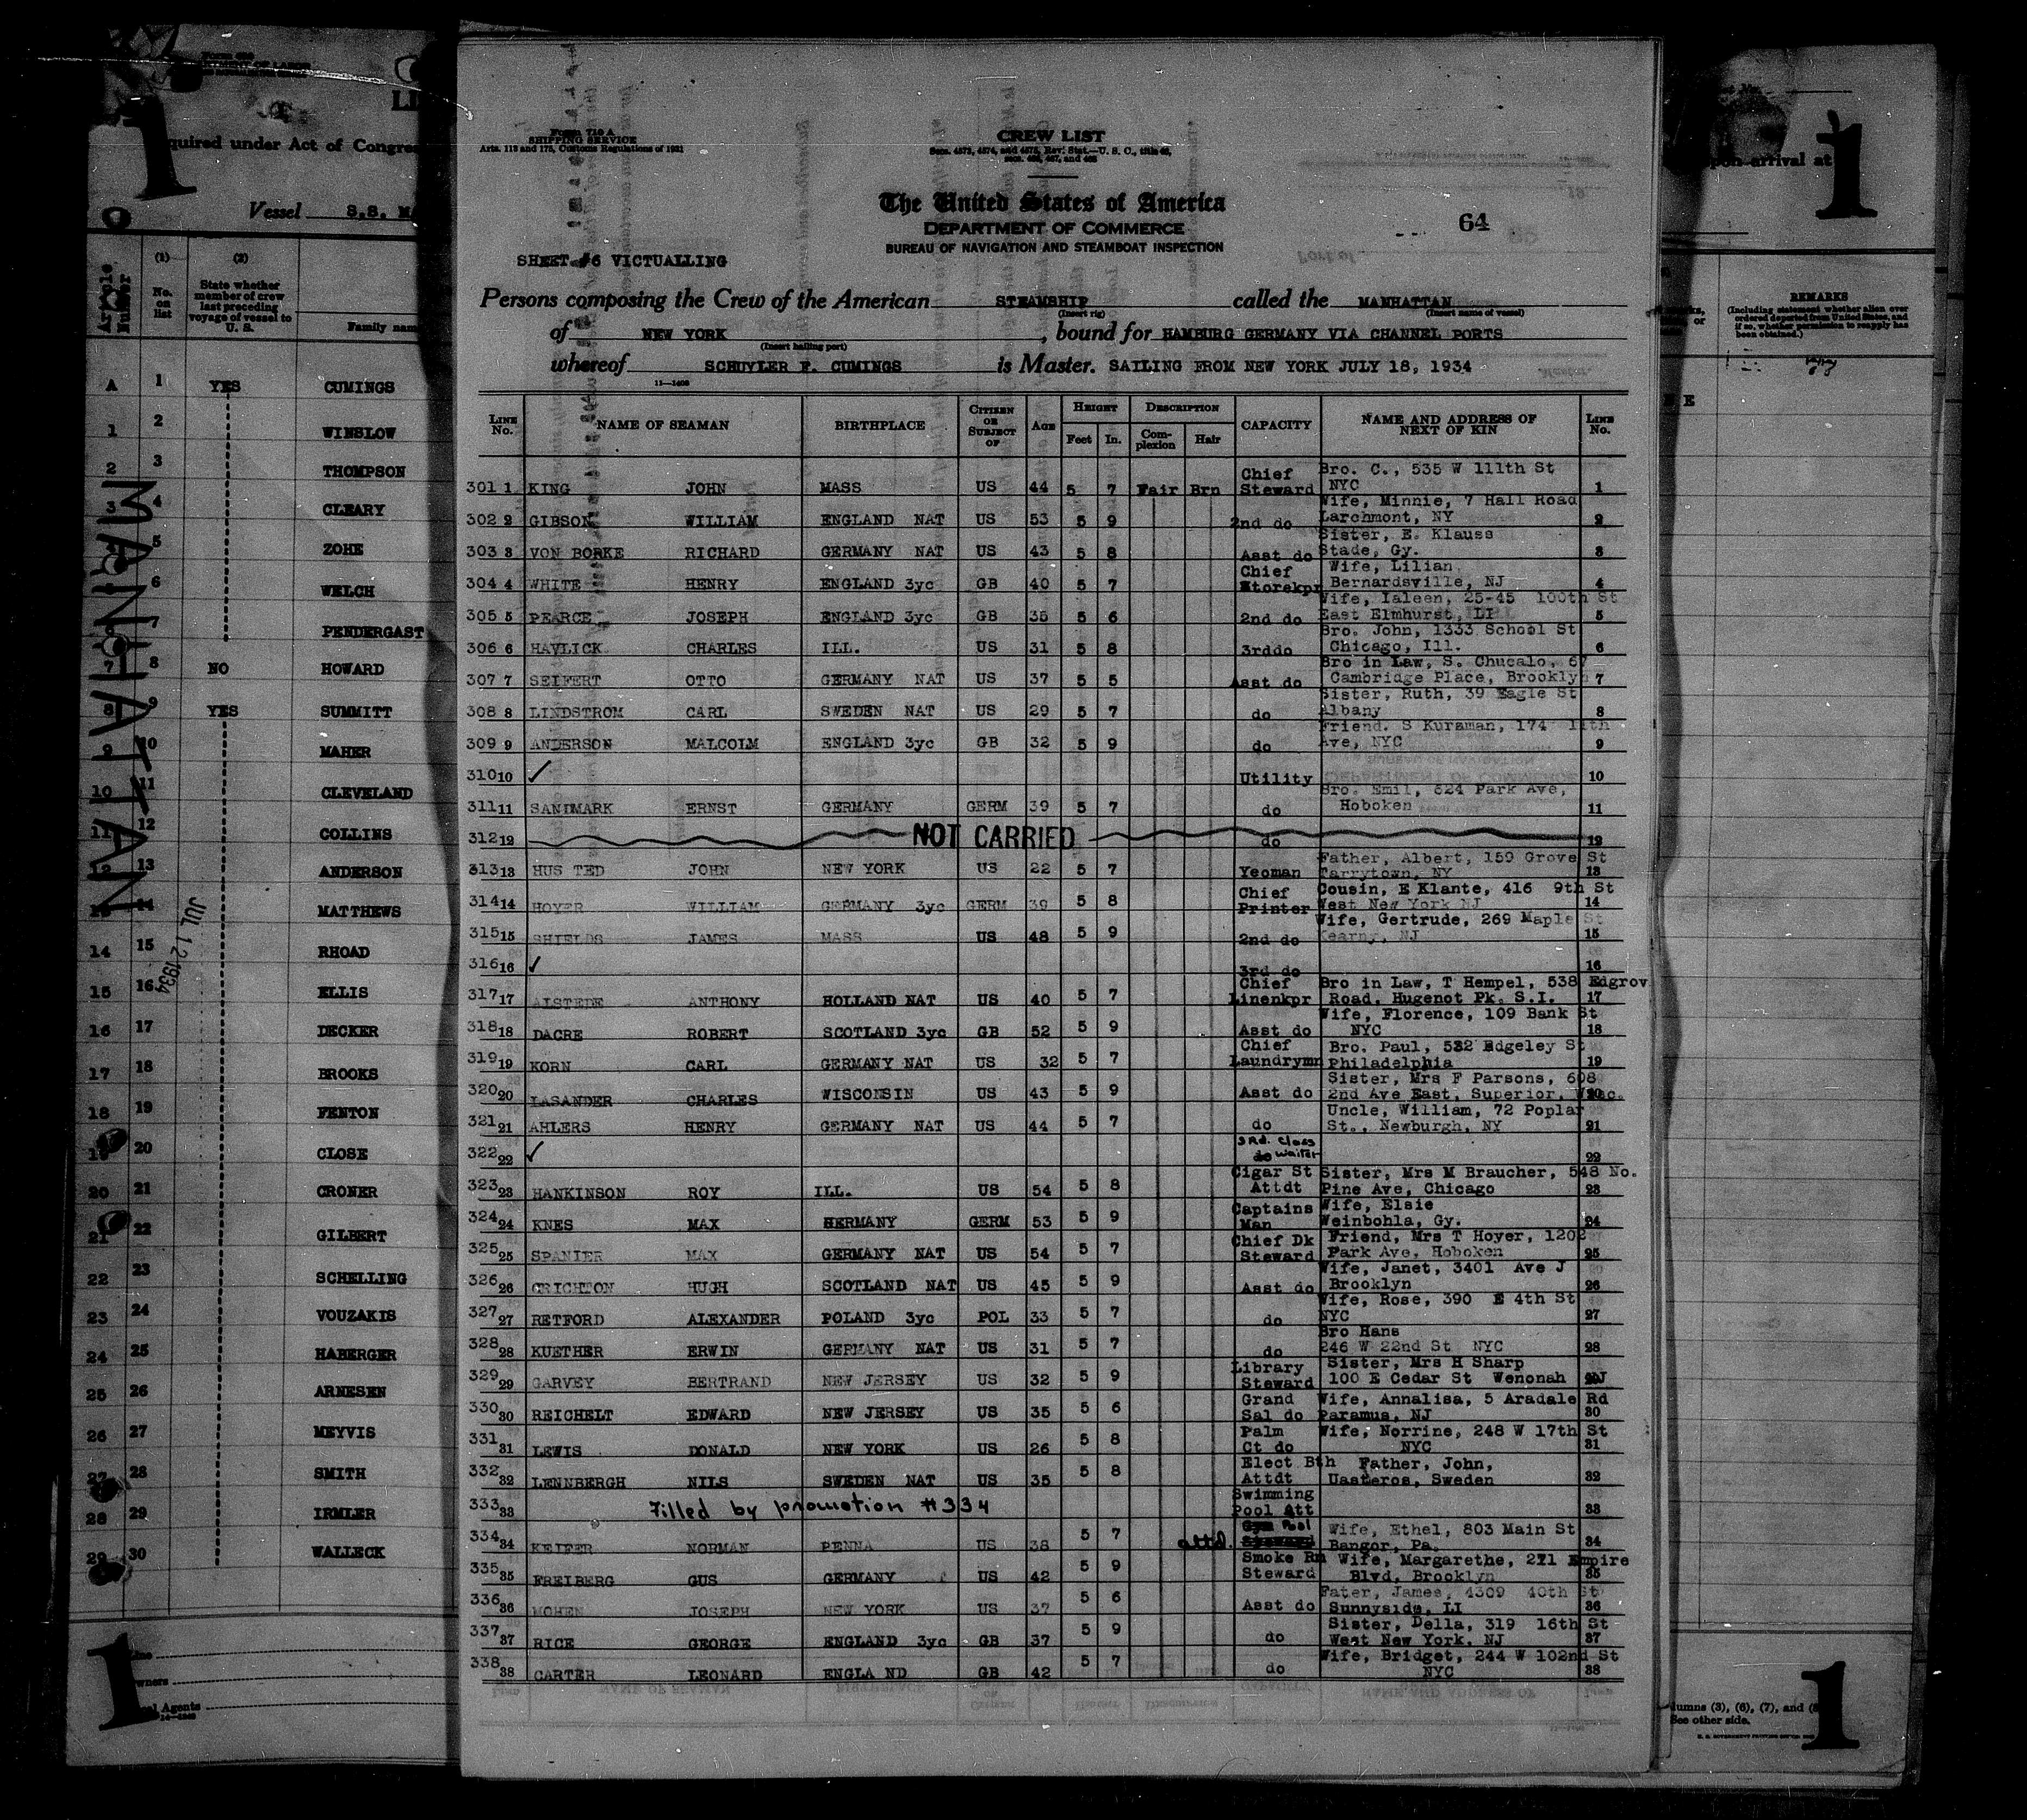 quired under Act of Congre
Vessel S.S. MA
Article Number
(1)
No. on list
(2)
State whether
member of crew
last preceding
voyage of vessel to
U. S.
Family nam
A 1 YES CUMINGS
1 2 WINSLOW
2 3 THOMPSON
3 4 CLEARY
5 ZOHE
6 WELCH
7 PENDERGAST
7 8 NO HOWARD
8 9 YES SUMMITT
9 10 MAHER
10 11 CLEVELAND
11 12 COLLINS
12 13 ANDERSON
13 14 MATTHEWS
14 15 RHOAD
15 16 ELLIS
16 17 DECKER
17 18 BROOKS
18 19 FENTON
19 20 CLOSE
20 21 CRONER
21 22 GILBERT
22 23 SCHELLING
23 24 VOUZAKIS
24 25 HABERGER
25 26 ARNESEN
26 27 MEYVIS
27 28 SMITH
28 29 IRMLER
29 30 WALLECK
MANHATTAN
JUL 12 1934
1
1
Form 710 A
SHIPPING SERVICE
Arts. 113 and 175, Customs Regulations of 1931
CREW LIST
Secs. 4573, 4574, and 4575, Rev. Stat.—U. S. C., title 46,
secs. 465, 467, and 468
The United States of America
DEPARTMENT OF COMMERCE
BUREAU OF NAVIGATION AND STEAMBOAT INSPECTION
64
SHEET #6 VICTUALLING
Persons composing the Crew of the American STEAMSHIP called the MANHATTAN
(Insert rig) (Insert name of vessel)
of NEW YORK , bound for HAMBURG GERMANY VIA CHANNEL PORTS
(Insert hailing port)
whereof SCHUYLER F. CUMINGS is Master. SAILING FROM NEW YORK JULY 18, 1934
11—1408
LINE No. NAME OF SEAMAN BIRTHPLACE CITIZEN OR SUBJECT OF AGE HEIGHT Feet In. DESCRIPTION Complexion Hair CAPACITY NAME AND ADDRESS OF NEXT OF KIN LINE No.
301 1 KING JOHN MASS US 44 5 7 Fair Brn Chief Steward Bro. C., 535 W 111th St NYC 1
302 2 GIBSON WILLIAM ENGLAND NAT US 53 5 9 2nd do Wife, Minnie, 7 Hall Road Larchmont, NY 2
303 3 VON BORKE RICHARD GERMANY NAT US 43 5 8 Asst do Sister, E. Klauss Stade, Gy. 3
304 4 WHITE HENRY ENGLAND 3yc GB 40 5 7 Chief Storekpr Wife, Lilian Bernardsville, NJ 4
305 5 PEARCE JOSEPH ENGLAND 3yc GB 35 5 6 2nd do Wife, Ialeen, 25-45 100th St East Elmhurst, LI 5
306 6 HAVLICK CHARLES ILL. US 31 5 8 3rddo Bro. John, 1333 School St Chicago, Ill. 6
307 7 SEIFERT OTTO GERMANY NAT US 37 5 5 Asst do Bro in Law, S. Chucalo, 67 Cambridge Place, Brooklyn 7
308 8 LINDSTROM CARL SWEDEN NAT US 29 5 7 do Sister, Ruth, 39 Eagle St Albany 8
309 9 ANDERSON MALCOLM ENGLAND 3yc GB 32 5 9 do Friend. S Kurzman, 174 11th Ave, NYC 9
310 10 ✓ Utility 10
311 11 SANDMARK ERNST GERMANY GERM 39 5 7 do Bro. Emil, 624 Park Ave, Hoboken 11
312 12 NOT CARRIED do 12
313 13 HUS TED JOHN NEW YORK US 22 5 7 Yeoman Father, Albert, 159 Grove St Tarrytown, NY 13
314 14 HOYER WILLIAM GERMANY 3yc GERM 39 5 8 Chief Printer Cousin, E Klante, 416 9th St West New York NJ 14
315 15 SHIELDS JAMES MASS US 48 5 9 2nd do Wife, Gertrude, 269 Maple St Kearny, NJ 15
316 16 ✓ 3rd do 16
317 17 ALSTEDE ANTHONY HOLLAND NAT US 40 5 7 Chief Linenkpr Bro in Law, T Hempel, 538 Edgrov Road, Hugenot Pk. S.I. 17
318 18 DACRE ROBERT SCOTLAND 3yc GB 52 5 9 Asst do Wife, Florence, 109 Bank St NYC 18
319 19 KORN CARL GERMANY NAT US 32 5 7 Chief Laundrymn Bro. Paul, 532 Edgeley St Philadelphia 19
320 20 LASANDER CHARLES WISCONSIN US 43 5 9 Asst do Sister, Mrs F Parsons, 608 2nd Ave East, Superior, Wisc. 20
321 21 AHLERS HENRY GERMANY NAT US 44 5 7 do Uncle, William, 72 Poplar St., Newburgh, NY 21
322 22 ✓ 3Rd. Class do Waiter 22
323 23 HANKINSON ROY ILL. US 54 5 8 Cigar St Attdt Sister, Mrs M Braucher, 548 No. Pine Ave, Chicago 23
324 24 KNES MAX HERMANY GERM 53 5 9 Captains Man Wife, Elsie Weinbohla, Gy. 24
325 25 SPANIER MAX GERMANY NAT US 54 5 7 Chief Dk Steward Friend, Mrs T Hoyer, 1202 Park Ave, Hoboken 25
326 26 CRICHTON HUGH SCOTLAND NAT US 45 5 9 Asst do Wife, Janet, 3401 Ave J Brooklyn 26
327 27 RETFORD ALEXANDER POLAND 3yc POL 33 5 7 do Wife, Rose, 390 E 4th St NYC 27
328 28 KUETHER ERWIN GERMANY NAT US 31 5 7 do Bro Hans 246 W 22nd St NYC 28
329 29 GARVEY BERTRAND NEW JERSEY US 32 5 9 Library Steward Sister, Mrs H Sharp 100 E Cedar St Wenonah NJ 29
330 30 REICHELT EDWARD NEW JERSEY US 35 5 6 Grand Sal do Wife, Annalisa, 5 Aradale Rd Paramus, NJ 30
331 31 LEWIS DONALD NEW YORK US 26 5 8 Palm Ct do Wife, Norrine, 248 W 17th St NYC 31
332 32 LENNBERGH NILS SWEDEN NAT US 35 5 8 Elect Bth Attdt Father, John, Uasteros, Sweden 32
333 33 Filled by promotion #334 Swimming Pool Att 33
334 34 KEIFER NORMAN PENNA US 38 5 7 attd. Pool Wife, Ethel, 803 Main St Bangor, Pa. 34
335 35 FREIBERG GUS GERMANY US 42 5 9 Smoke Rm Steward Wife, Margarethe, 271 Empire Blvd, Brooklyn 35
336 36 MOHEN JOSEPH NEW YORK US 37 5 6 Asst do Fater, James, 4309 40th St Sunnyside, LI 36
337 37 RICE GEORGE ENGLAND 3yc GB 37 5 9 do Sister, Della, 319 16th St West New York, NJ 37
338 38 CARTER LEONARD ENGLA ND GB 42 5 7 do Wife, Bridget, 244 W 102nd St NYC 38
1
pon arrival at
REMARKS
(Including statement whether alien ever
ordered deported from United States, and
if so, whether permission to reapply has
been obtained.)
lumns (3), (6), (7), and (8
See other side.
1